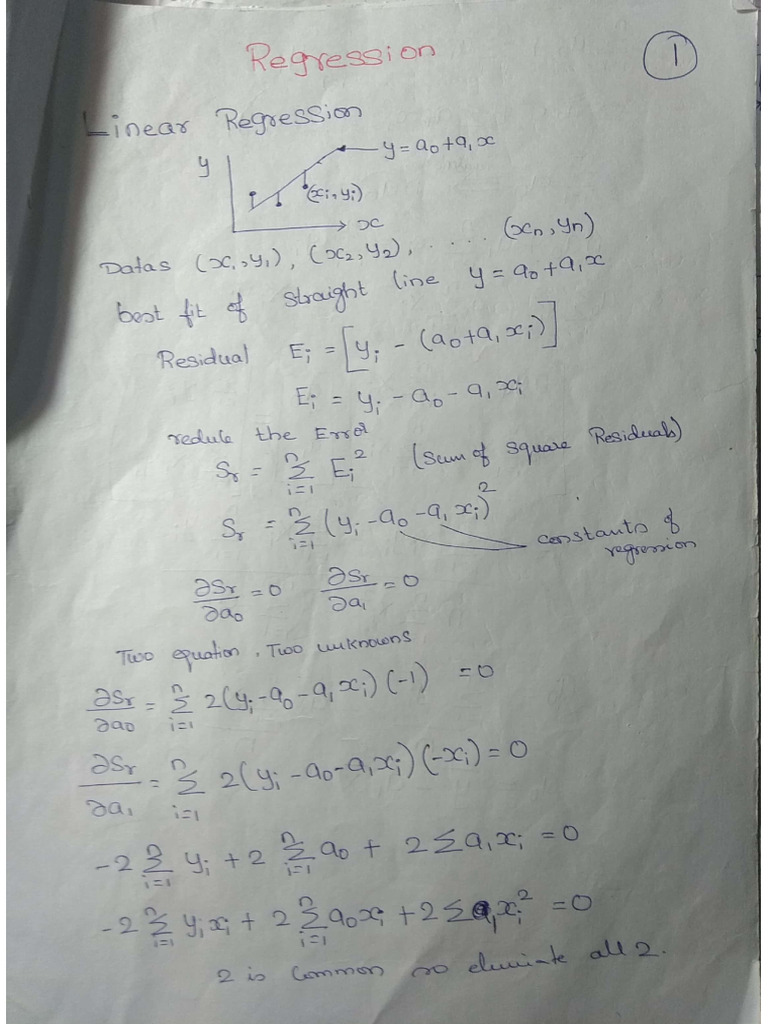 Regression
1
Linear Regression
y
y = a₀ + a₁x
(xᵢ, yᵢ)
x
Datas (x₁, y₁), (x₂, y₂), . . . . . (xₙ, yₙ)
best fit of straight line y = a₀ + a₁x
Residual Eᵢ = [yᵢ - (a₀ + a₁xᵢ)]
Eᵢ = yᵢ - a₀ - a₁xᵢ
reduce the Error
Sᵣ = Σᵢ₌₁ⁿ Eᵢ² (Sum of square Residuals)
Sᵣ = Σᵢ₌₁ⁿ (yᵢ - a₀ - a₁xᵢ)²
constants of
regression
∂Sᵣ/∂a₀ = 0 ∂Sᵣ/∂a₁ = 0
Two equation, Two unknowns
∂Sᵣ/∂a₀ = Σᵢ₌₁ⁿ 2(yᵢ - a₀ - a₁xᵢ)(-1) = 0
∂Sᵣ/∂a₁ = Σᵢ₌₁ⁿ 2(yᵢ - a₀ - a₁xᵢ)(-xᵢ) = 0
-2 Σᵢ₌₁ⁿ yᵢ + 2 Σᵢ₌₁ⁿ a₀ + 2 Σ a₁xᵢ = 0
-2 Σᵢ₌₁ⁿ yᵢxᵢ + 2 Σᵢ₌₁ⁿ a₀xᵢ + 2 Σ a₁xᵢ² = 0
2 is common so eliminate all 2.